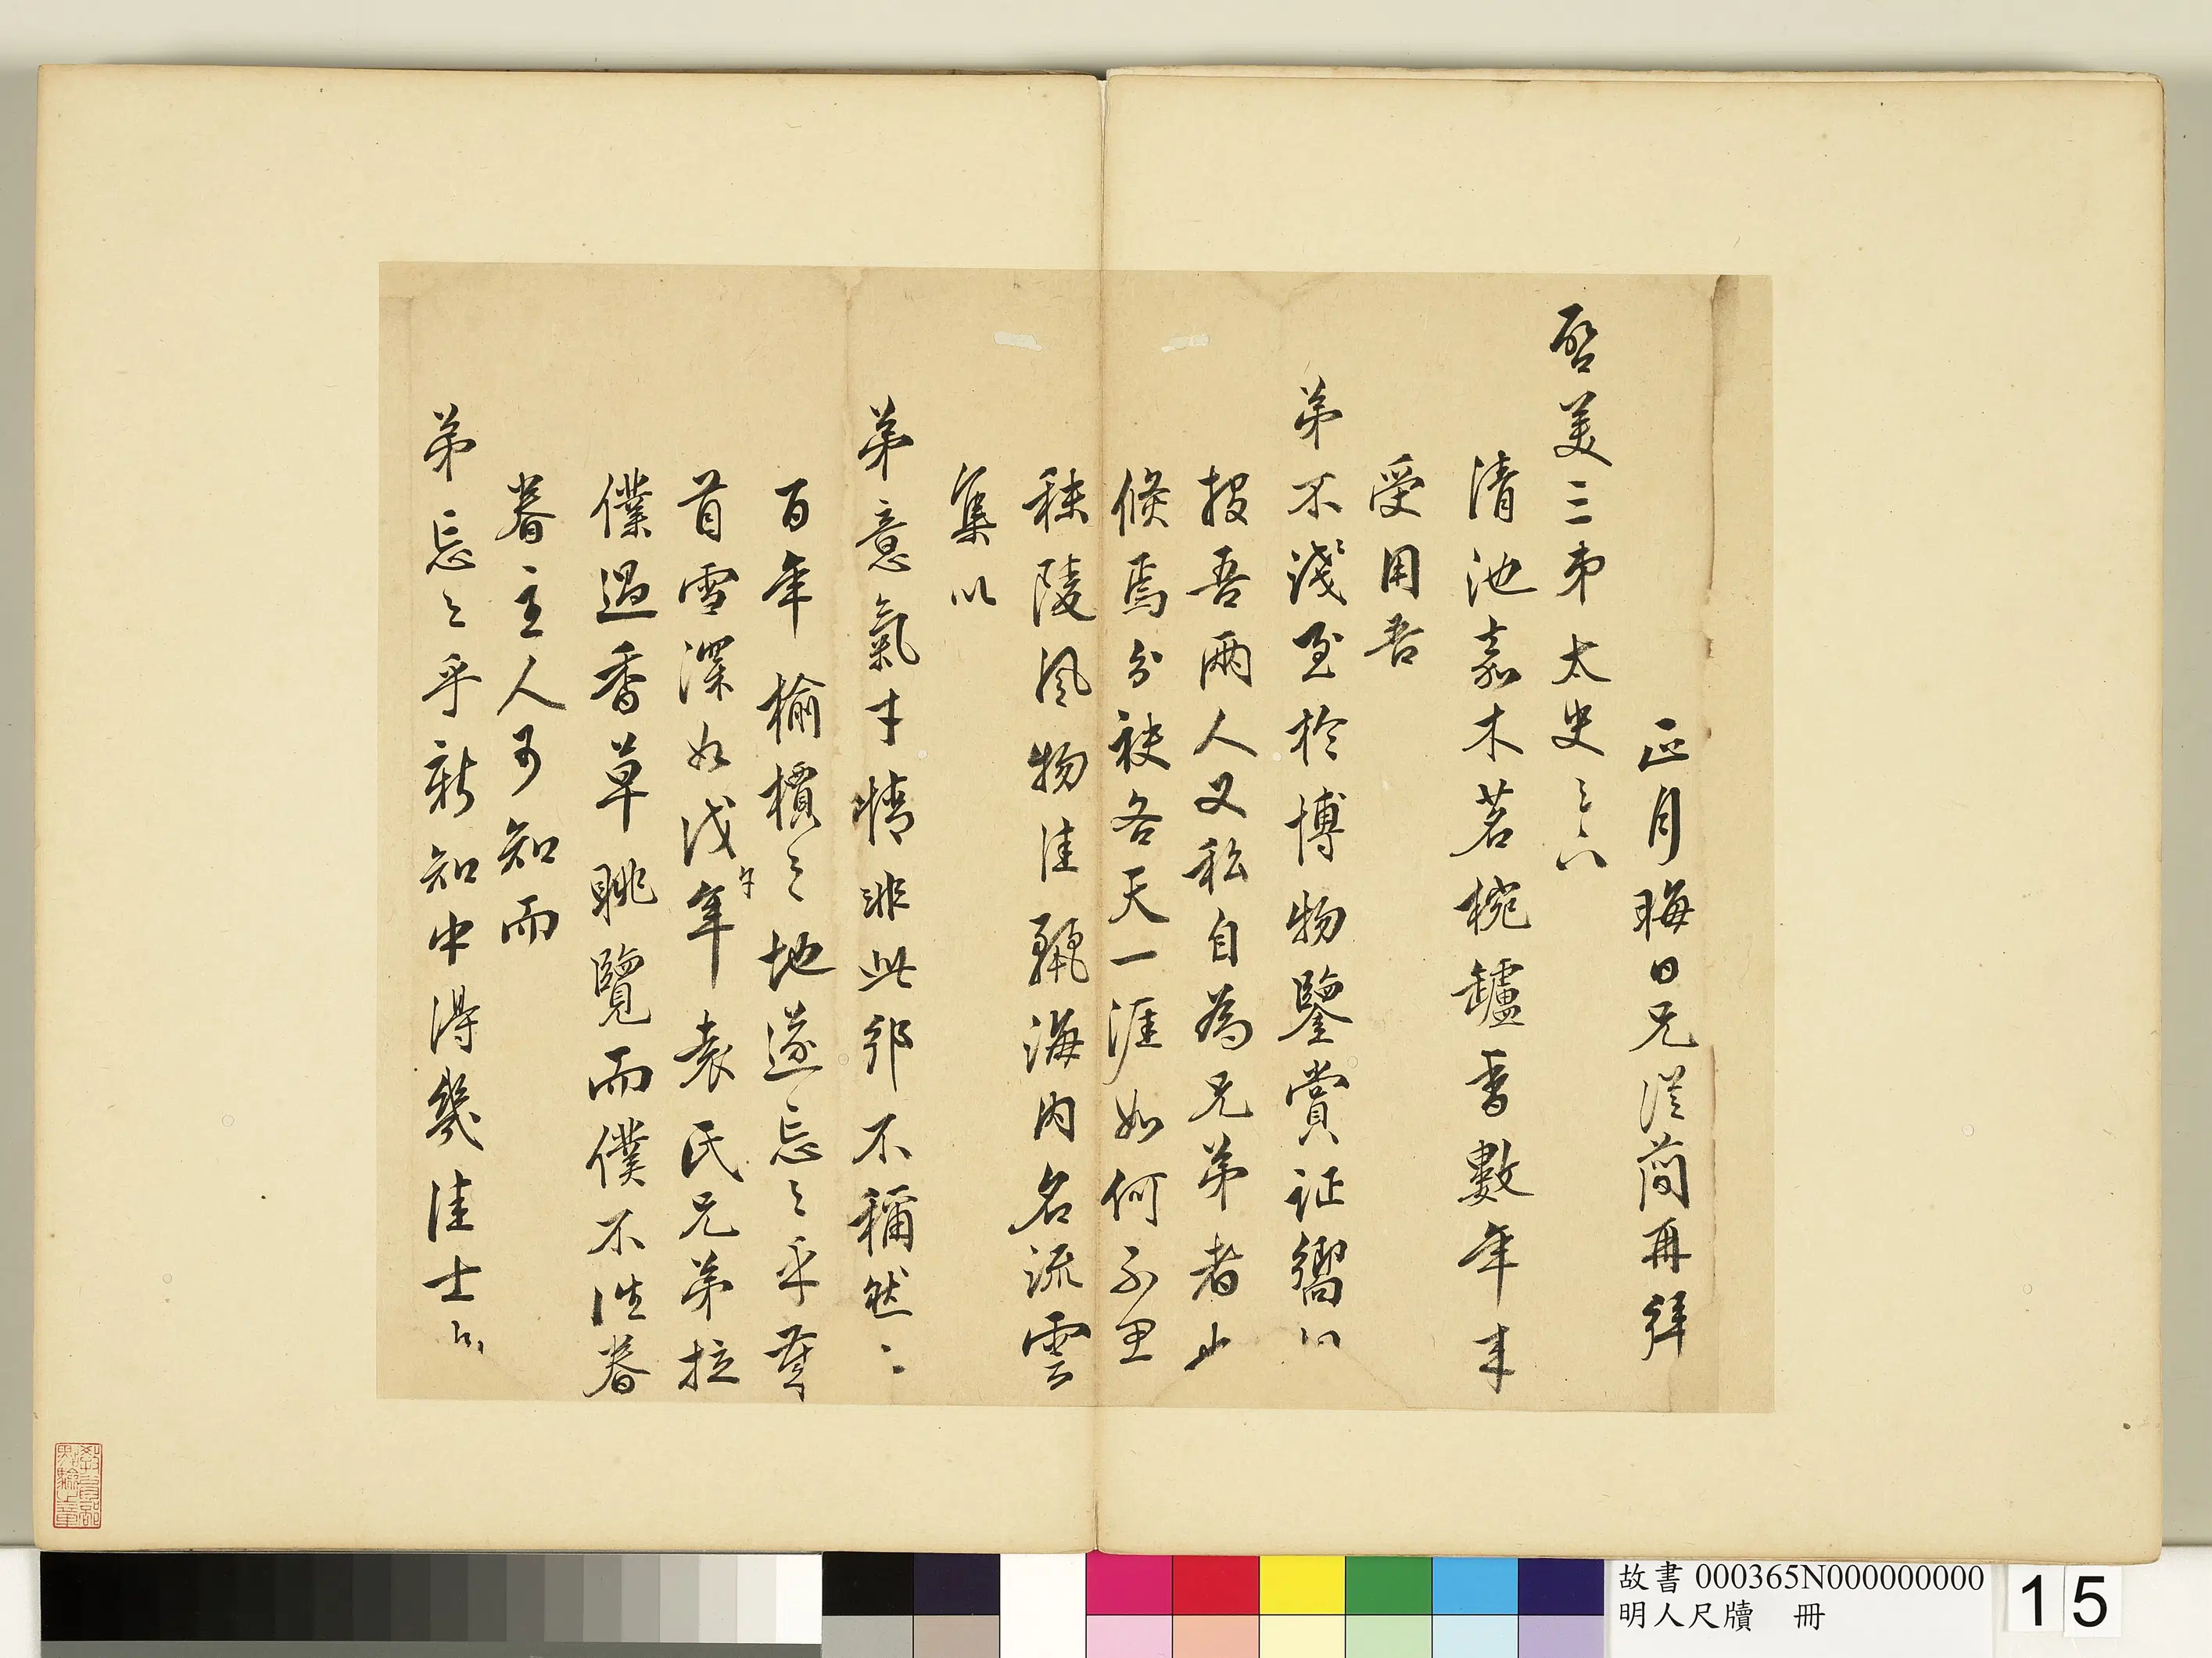 正月晦日兄從簡再拜
啓美三弟太史之六
清池嘉木茗椀鑪香數年來
受用吾
弟不淺〻至於博物鑒賞証嚮以
投吾兩人又私自為兄弟者止
倏焉分袂各天一涯如何不思
秣陵風物佳麗海内名流雲
集以
弟意氣才情非此邪不稱然〻
百年檜檟之地遂忘之乎舊
首雪深如戊午年袁氏兄弟拉
僕過香草眺覽而僕不往眷
眷主人可知而
弟忘之乎新知中得幾佳士
故書 000365N000000000
明人尺牘 冊
15